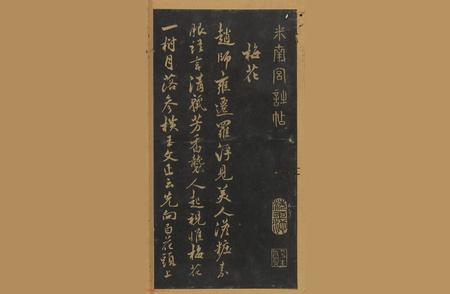 米南宮帖
梅花
趙師雄遷羅浮見美人淡粧素
服語言清麗芳香襲人起視惟梅花
一樹月落參橫王文正云先向百花頭上